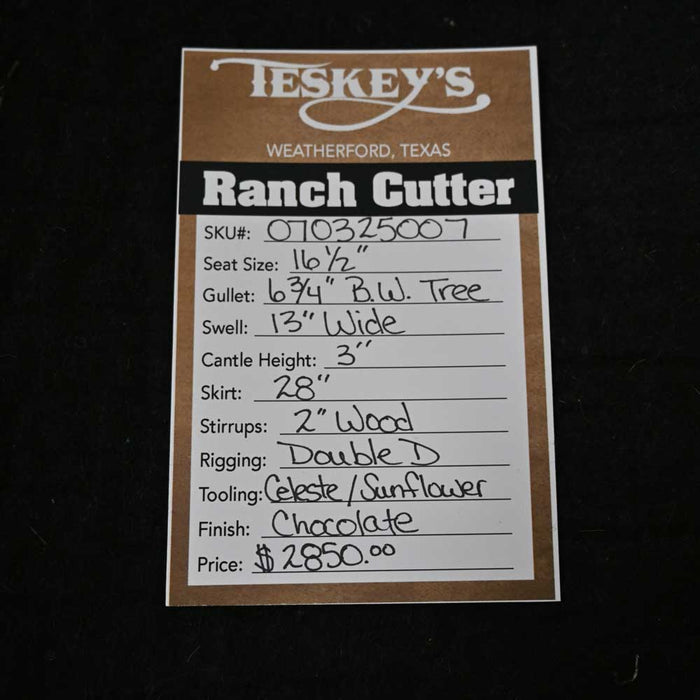 TESKEY'S
WEATHERFORD, TEXAS
Ranch Cutter
SKU#: 070325007
Seat Size: 16 1/2"
Gullet: 6 3/4" B.W. Tree
Swell: 13" Wide
Cantle Height: 3"
Skirt: 28"
Stirrups: 2" Wood
Rigging: Double D
Tooling: Celeste/Sunflower
Finish: Chocolate
Price: $2850.00